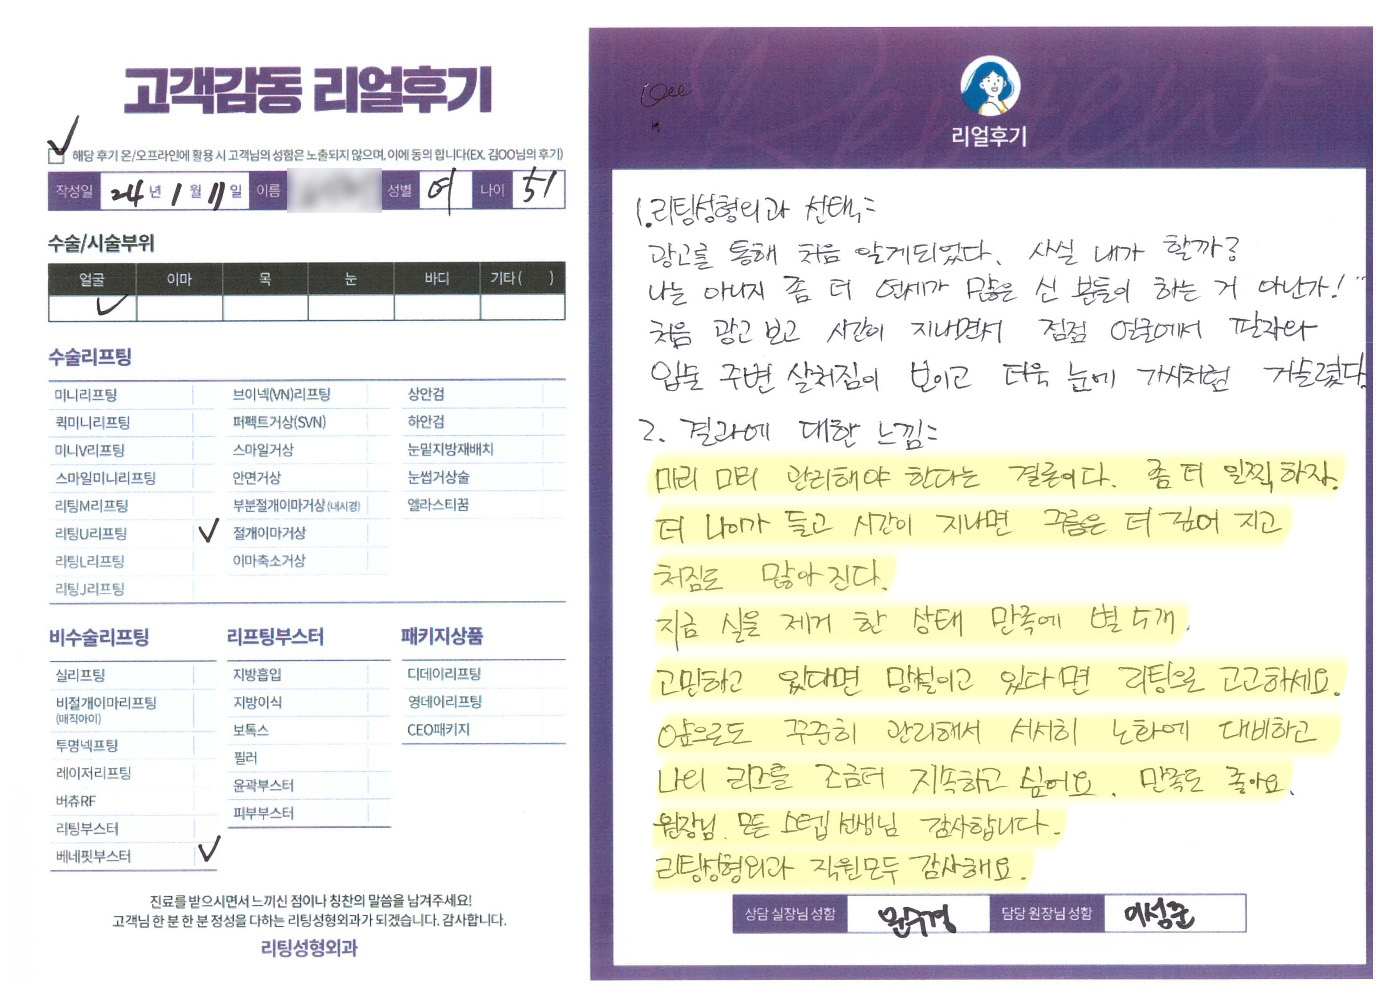 고객감동 리얼후기
해당 후기 온/오프라인에 활용 시 고객님의 성함은 노출되지 않으며, 이에 동의 합니다(EX. 김OO님의 후기)
작성일 24 년 1 월 11 일 이름 성별 여 나이 51
수술/시술부위
얼굴 이마 목 눈 바디 기타( )
수술리프팅
미니리프팅 브이넥(VN)리프팅 상안검
퀵미니리프팅 퍼펙트거상(SVN) 하안검
미니V리프팅 스마일거상 눈밑지방재배치
스마일미니리프팅 안면거상 눈썹거상술
리팅M리프팅 부분절개이마거상(내시경) 엘라스티꿈
리팅U리프팅 절개이마거상
리팅L리프팅 이마축소거상
리팅J리프팅
비수술리프팅 리프팅부스터 패키지상품
실리프팅 지방흡입 디데이리프팅
비절개이마리프팅 지방이식 영데이리프팅
(매직아이) 보톡스 CEO패키지
투명넥프팅 필러
레이저리프팅 윤곽부스터
버츄RF 피부부스터
리팅부스터
베네핏부스터
진료를 받으시면서 느끼신 점이나 칭찬의 말씀을 남겨주세요!
고객님 한 분 한 분 정성을 다하는 리팅성형외과가 되겠습니다. 감사합니다.
리팅성형외과
리얼후기
1. 리팅성형외과 선택:
광고를 통해 처음 알게되었다. 사실 내가 할까?
나는 아니지 좀 더 연세가 많은 신 분들이 하는 거 아닌가!"
처음 광고 보고 시간이 지내면서 점점 얼굴에서 팔자와
입술 주변 살처짐이 보이고 더욱 눈에 가시처럼 거슬렸다.
2. 결과에 대한 느낌:
미리 미리 관리해야 한다는 결론이다. 좀 더 일찍하자.
더 나이가 들고 시간이 지나면 주름은 더 깊어 지고
처짐도 많아진다.
지금 실을 제거 한 상태 만족에 별 5개.
고민하고 있다면 망설이고 있다면 리팅으로 고고하세요.
앞으로도 꾸준히 관리해서 서서히 노화에 대비하고
나의 리즈를 조금더 지속하고 싶어요. 만족도 좋아요.
원장님. 모든 스텝 선생님 감사합니다.
리팅성형외과 직원모두 감사해요.
상담 실장님 성함 원수경 담당 원장님 성함 이성준